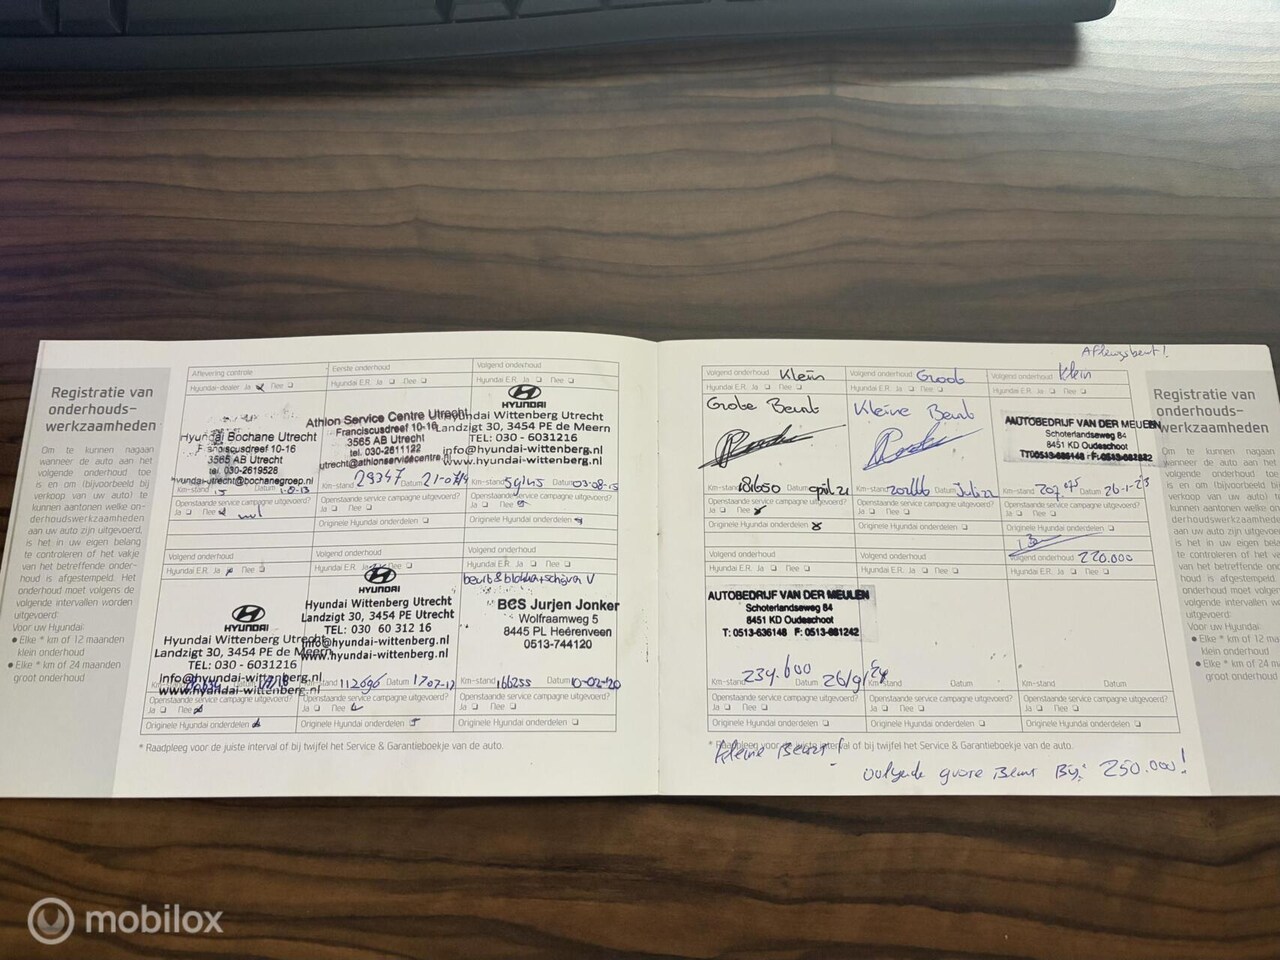 Registratie van
onderhouds-
werkzaamheden
Om te kunnen nagaan
wanneer de auto aan het
volgende onderhoud toe
is en om (bijvoorbeeld bij
verkoop van uw auto) te
kunnen aantonen welke on-
derhoudswerkzaamheden
aan uw auto zijn uitgevoerd,
is het in uw eigen belang
te controleren of het vakje
van het betreffende onder-
houd is afgestempeld. Het
onderhoud moet volgens de
volgende intervallen worden
uitgevoerd:
Voor uw Hyundai:
● Elke * km of 12 maanden
klein onderhoud
● Elke * km of 24 maanden
groot onderhoud
Aflevering controle
Hyundai-dealer Ja Nee
Hyundai Bochane Utrecht
Franciscusdreef 10-16
3565 AB Utrecht
tel. 030-2619528
hyundai-utrecht@bochanegroep.nl
Km-stand 15 Datum
Openstaande service campagne uitgevoerd?
Ja Nee
Eerste onderhoud
Hyundai E.R. Ja Nee
Athlon Service Centre Utrecht
Franciscusdreef 10-16
3565 AB Utrecht
tel. 030-2611122
utrecht@athlonservicecentre.nl
Km-stand 29347 Datum 21-07/14
Openstaande service campagne uitgevoerd?
Ja Nee
Originele Hyundai onderdelen
Volgend onderhoud
Hyundai E.R. Ja Nee
HYUNDAI
Hyundai Wittenberg Utrecht
Landzigt 30, 3454 PE de Meern
TEL: 030 - 6031216
info@hyundai-wittenberg.nl
www.hyundai-wittenberg.nl
Km-stand Datum 03-08-15
Openstaande service campagne uitgevoerd?
Ja Nee
Originele Hyundai onderdelen
Volgend onderhoud
Hyundai E.R. Ja Nee
HYUNDAI
Hyundai Wittenberg Utrecht
Landzigt 30, 3454 PE de Meern
TEL: 030 - 6031216
info@hyundai-wittenberg.nl
www.hyundai-wittenberg.nl
Km-stand Datum
Openstaande service campagne uitgevoerd?
Ja Nee
Originele Hyundai onderdelen
Volgend onderhoud
Hyundai E.R. Ja Nee
HYUNDAI
Hyundai Wittenberg Utrecht
Landzigt 30, 3454 PE Utrecht
TEL: 030 60 312 16
info@hyundai-wittenberg.nl
www.hyundai-wittenberg.nl
Km-stand 112696 Datum 17-07-17
Openstaande service campagne uitgevoerd?
Ja Nee
Originele Hyundai onderdelen
Volgend onderhoud
beurt & blokken + schijven V
BCS Jurjen Jonker
Wolfraamweg 5
8445 PL Heerenveen
0513-744120
Km-stand 166255 Datum 10-02-20
Openstaande service campagne uitgevoerd?
Ja Nee
Originele Hyundai onderdelen
* Raadpleeg voor de juiste interval of bij twijfel het Service & Garantieboekje van de auto.
Afleverbeurt!
Volgend onderhoud Klein
Hyundai E.R. Ja Nee
Grote Beurt
Km-stand 181650 Datum april 21
Openstaande service campagne uitgevoerd?
Ja Nee
Originele Hyundai onderdelen
Volgend onderhoud Groot
Hyundai E.R. Ja Nee
Kleine Beurt
Km-stand Datum Juli 22
Openstaande service campagne uitgevoerd?
Ja Nee
Originele Hyundai onderdelen
Volgend onderhoud Klein
Hyundai E.R. Ja Nee
AUTOBEDRIJF VAN DER MEULEN
Schoterlandseweg 84
8451 KD Oudeschoot
Km-stand Datum 26-1-23
Openstaande service campagne uitgevoerd?
Ja Nee
Originele Hyundai onderdelen
Volgend onderhoud
Hyundai E.R. Ja Nee
AUTOBEDRIJF VAN DER MEULEN
Schoterlandseweg 84
8451 KD Oudeschoot
T: 0513-636148 F: 0513-681242
Km-stand 234.600 Datum 26/9/24
Openstaande service campagne uitgevoerd?
Ja Nee
Originele Hyundai onderdelen
Volgend onderhoud
Hyundai E.R. Ja Nee
Km-stand Datum
Openstaande service campagne uitgevoerd?
Ja Nee
Originele Hyundai onderdelen
Volgend onderhoud 220.000
Hyundai E.R. Ja Nee
Km-stand Datum
Openstaande service campagne uitgevoerd?
Ja Nee
Originele Hyundai onderdelen
* Raadpleeg voor de juiste interval of bij twijfel het Service & Garantieboekje van de auto.
Kleine Beurt!
Volgende grote Beurt Bij: 250.000!
Registratie van
onderhouds-
werkzaamheden
mobilox